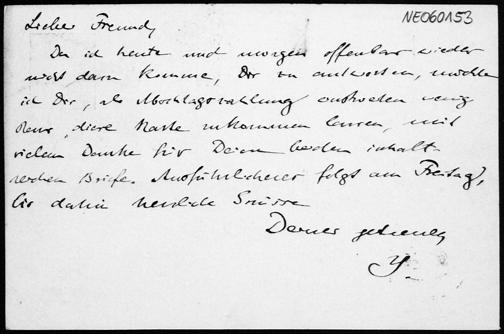 NE060153
Lieber Freund,
Da ich heute und morgen offenbar wieder
nicht dazu komme, Dir zu antworten, möchte
ich Dir, als Abschlagszahlung wenig
diese Karte zukommen lassen, mit
vielem Danke für Deine beiden inhalt-
reichen Briefe. Ausführlicheres folgt am Freitag,
bis dahin herzliche Grüsse
Deines getreuen
Y.